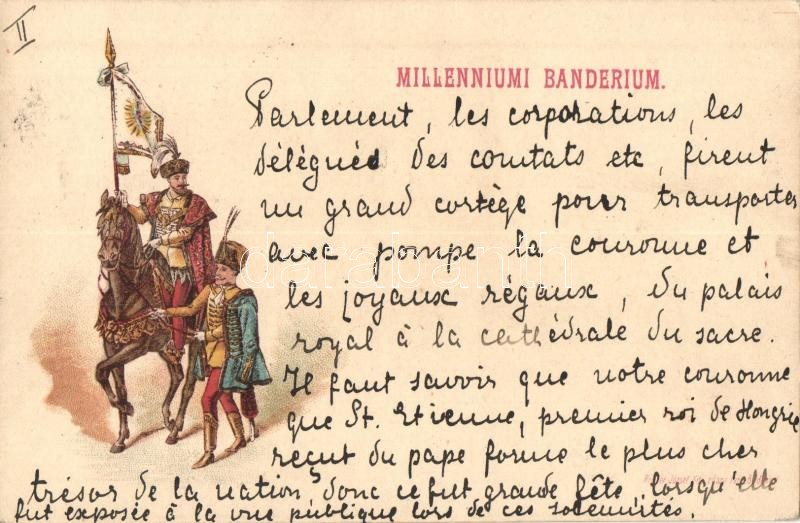 II
MILLENNIUMI BANDERIUM.
Parlement, les corporations, les
délégués des comitats etc, firent
un grand cortège pour transporter
avec pompe la couronne et
les joyaux régaux, du palais
royal à la cathédrale du sacre.
Il faut savoir que notre couronne
que St. Etienne, premier roi de Hongrie
reçut du pape forme le plus cher
trésor de la nation, donc ce fut grande fête, lorsqu'elle
fut exposée à la vue publique lors de ces solemnités.
darabanth